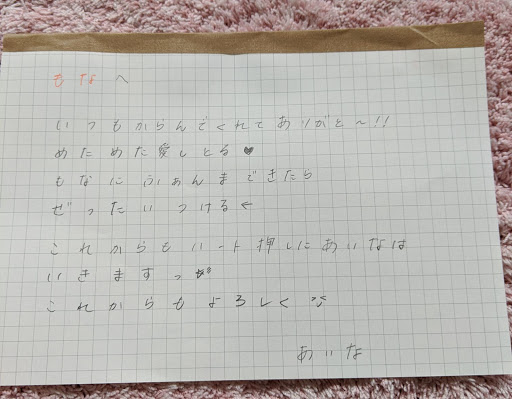 もなへ
いつもからんでくれてありがと〜!!
めためた愛しとる♥
もなにふぁんまできたら
ぜったいつける←
これからもハート押しにあいなは
いきますっ
これからもよろしく
あいな